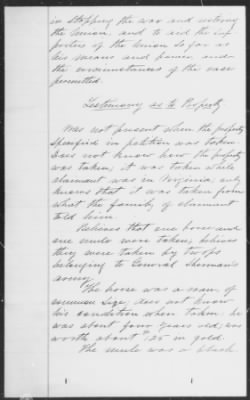 in stopping the war and restoring
the Union, and to aid the sup-
porters of the Union so far as
his means and power, and
the circumstances of the case
permitted.
Testimony as to Property.
Was not present when the property
specified in petition was taken
Does not know how the property
was taken; it was taken while
claimant was in Virginia; only
knows that it was taken from
what the family of claimant
told him.
Believes that one horse and
one mule were taken; believes
they were taken by troops
belonging to General Sherman's
army.
The horse was a roan, of
medium size; does not know
his condition when taken; he
was about four years old; was
worth about $125 in gold.
The mule was a black